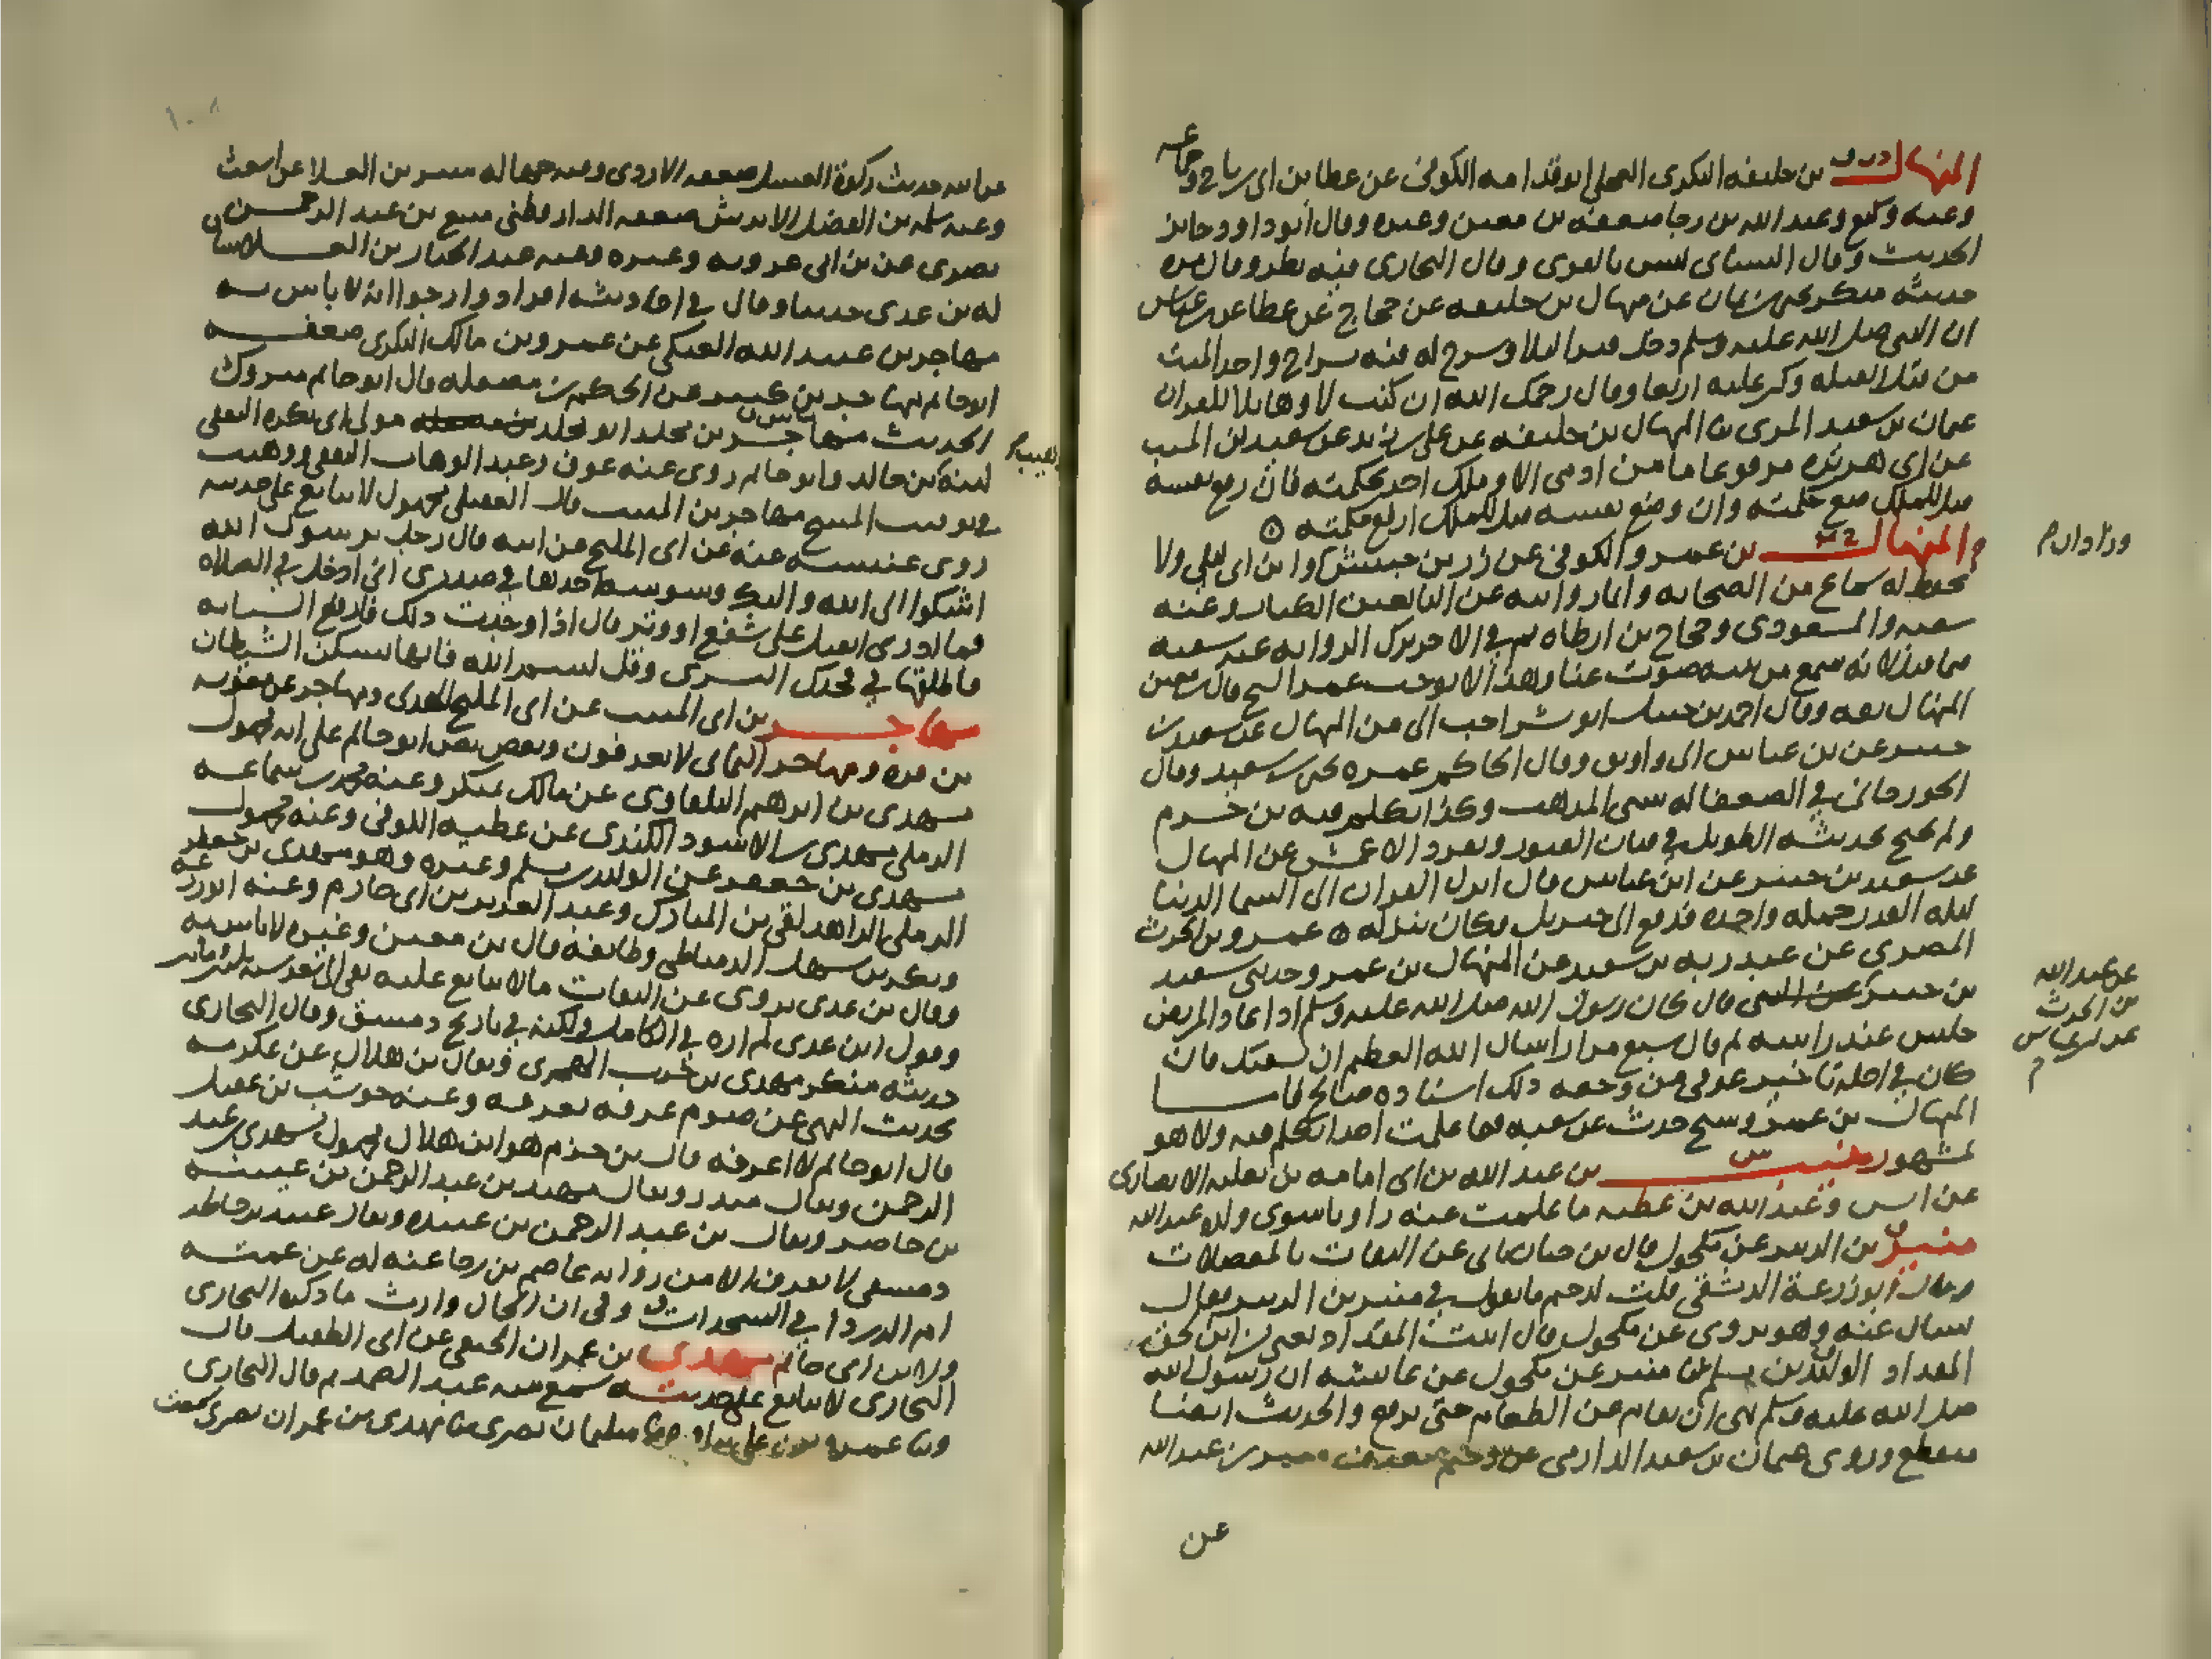 المنهال بن خليفه البكري العجلي ابو قدامه الكوفي عن عطا بن ابي رباح وجماعه
وعنه وكيع وعبد الله بن رجا ضعفه بن معين وغيره وقال ابو داود جايز
الحديث وقال النسائي ليس بالقوي وقال البخاري فيه نظر وقال مره
حديثه منكر يحيى بن يمان عن منهال بن خليفه عن حجاج عن عطا عن بن عباس
ان النبي صلى الله عليه وسلم دخل قبرا ليلا وسرج له فيه سراج واخذ الميت
من قبل القبله وكبر عليه اربعا وقال رحمك الله ان كنت لاوها تلا للقران
عثمان بن سعيد المري ثنا المنهال بن خليفه عن علي بن زيد عن سعيد بن المسيب
عن ابي هريره مرفوعا ما من ادمي الا وملك اخذ بحكمته فان رفع نفسه
قيل للملك ضع حكمته وان وضع نفسه قيل للملك ارفع حكمته
المنهال بن عمرو الكوفي عن زر بن حبيش وابن ابي ليلى ولا
يحفظ له سماع من الصحابه وانما روايته عن التابعين الكبار وعنه
شعبه والمسعودي وحجاج بن ارطاه ثم في الاخر ترك الروايه عنه شعبه
فيما قيل لانه سمع من بيته صوت غنا وهذا لا يوجب غمز الشيخ قال بن معين
المنهال ثقه وقال احمد بن حنبل ابو بشر احب الي من المنهال عن سعيد بن
جبير عن بن عباس الي واوثق وقال الحاكم غمزه يحيى بن سعيد وقال
الجوزجاني في الضعفا له سيئ المذهب وكذا تكلم فيه بن حزم
ولم يحتج بحديثه الطويل في فتان القبور وتفرد الاعمش عن المنهال
عن سعيد بن جبير عن ابن عباس قال انزل القران الى السما الدنيا
ليله القدر جمله واحده فدفع الى جبريل فكان ينزله عمرو بن الحرث
المصري عن عبد ربه بن سعيد عن المنهال بن عمرو حدثني سعيد
بن جبير قال كان رسول الله صلى الله عليه وسلم اذا عاد المريض
جلس عند راسه ثم قال سبع مرار اسال الله العظيم ان يشفيك فان
كان في اجله تاخير عوفي من وجعه ذلك اسناده صالح فاما
المنهال بن عمرو شيخ حدث عن شعبه فما علمت احدا تكلم فيه ولا هو
بمشهور منيب بن عبد الله بن ابي امامه بن ثعلبه الانصاري
عن ابيه وعبد الله بن عطيه ما علمت عنه راويا سوى ولده عبد الله
منير بن الزبير عن مكحول قال بن حبان ياتي عن الثقات بالمعضلات
وقال ابو زرعة الدمشقي قلت لدحيم ما تقول في منير بن الزبير فقال
تسال عنه وهو يروي عن مكحول قال اتيت المقداد
المقداد الوليد بن مسلم عن منير عن مكحول عن عائشه ان رسول الله
صلى الله عليه وسلم نهى ان يقام عن الطعام حتى يرفع والحديث ايضا
منقطع وروى عثمان بن سعيد الدارمي عن دحيم تضعيفه منير بن عبد الله
عن
وزاذان م
عن عبد الله
بن الحرث
عن بن عباس
م
١٠٨
عن ابيه حديث زكوة العسل ضعفه الازدي وفيه جهاله ميسر بن العلا عن اشعث
وعنه سلمه بن الفضل الابرش ضعفه الدارقطني منيع بن عبد الرحمن
بصري عن بن ابي عروبه وغيره وعنه عبد الجبار بن العلا ساق
له بن عدي حديثا وقال في احاديثه افراد وارجوا انه لا باس به
مهاجر بن عبيد الله العتكي عن عمرو بن مالك النكري ضعفه
ابو حاتم مهاجر بن عن الحكم بن مصقله قال ابو حاتم متروك
الحديث مهاجر بن مخلد ابو مخلد مولى ابي بكره الثقفي
لينه بن خالد وابو حاتم روى عنه عوف وعبد الوهاب الثقفي ووهيب
مهاجر بن المسيب قال العقيلي مجهول لا يتابع على حديثه
روى عنبسه عنه عن ابي المليح عن ابيه قال رجل يرسول الله
اشكوا الى الله واليك وسوسة اجدها في صدري اني ادخل في الصلاه
فما ادري انفتل على شفع او وتر قال اذا وجدت ذلك فارفع السبابه
فاطلقها في فخذك اليسرى وقل بسم الله فانها تسكن الشيطان
مهاجر بن ابي المسيب عن ابي المليح الهذلي ومهاجر عن معويه
بن قره ومهاجر اليماني لا يعرفون وبعض نص ابو حاتم على انه مجهول
مهدي بن ابرهيم البلقاوي عن مالك بمنكر وعنه محمد بن سماعه
الرملي مهدي بن الاسود الكندي عن عطيه العوفي وعنه مجهول
مهدي بن جعفر عن الوليد بن مسلم وغيره وهو مهدي بن جعفر
الرملي الزاهد لقي بن المبارك وعبد العزيز بن ابي حازم وعنه ابو زرعه
وبكر بن سهل الدمياطي وطايفه قال بن معين وغيره لا باس به
وقال بن عدي يروي عن الثقات ما لا يتابع عليه
وقول ابن عدي لم اره في الكامل ولكنه في تاريخ دمشق وقال البخاري
حديثه منكر مهدي بن حرب الهجري ويقال بن هلال عن عكرمه
بحديث النهي عن صوم عرفه بعرفه وعنه حوشب بن عقيل
قال ابو حاتم لا اعرفه قال بن حزم هو ابن هلال مجهول مهدي بن عبد
الرحمن ويقال بن عبد الرحمن بن عبيده
بن حاضر ويقال بن عبد الرحمن بن عبيده ويقال عبيد بن خاطر
دمشقي لا يعرف الا من روايه عاصم بن رجا عنه له عن عمته
ام الدردا في السجدات وفي ان الخال وارث ما ذكره البخاري
ولا بن ابي حاتم مهدي بن عمران الحنفي عن ابي الطفيل قال
البخاري لا يتابع على حديثه سمع منه عبد الصمد ثم قال البخاري
وثنا عمرو بن علي سليمان بصري ثنا مهدي بن عمران بصري سمعت